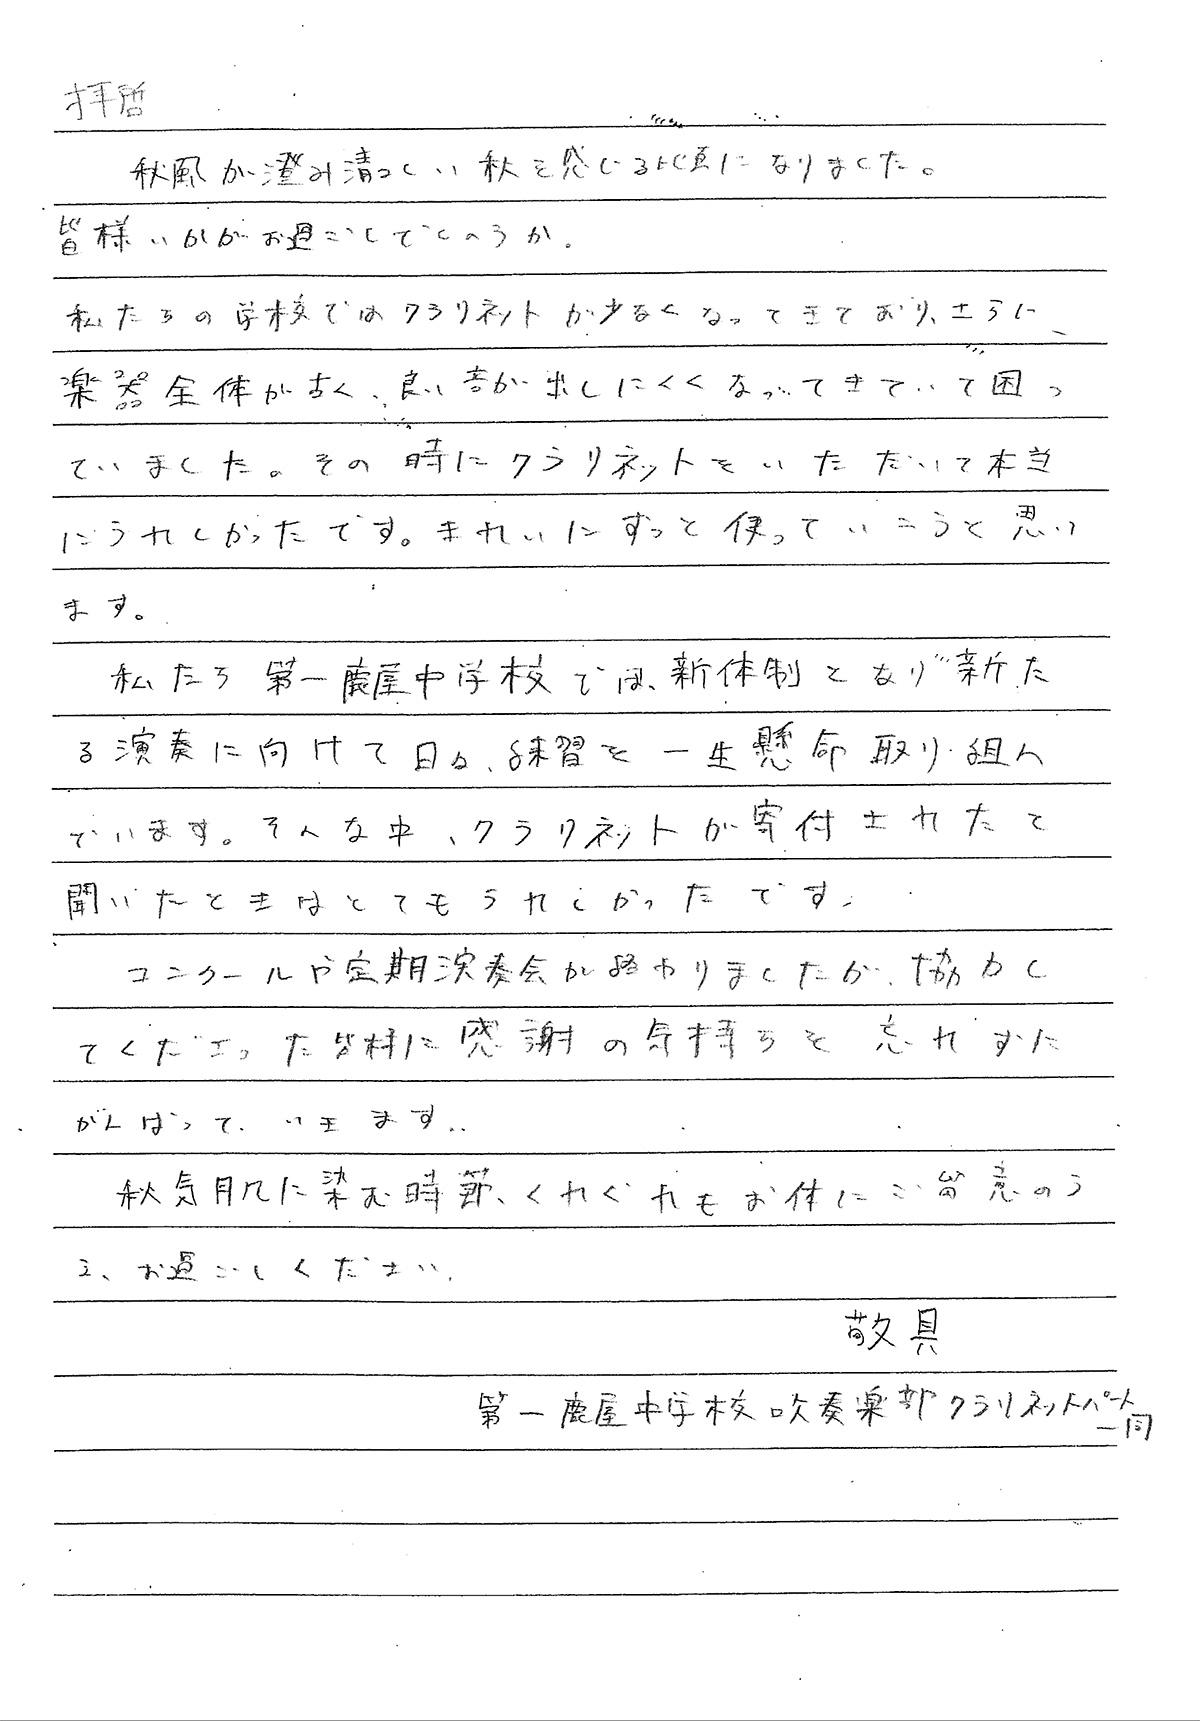 拝啓
秋風が澄み清々しい秋を感じる頃になりました。
皆様いかがお過ごしでしょうか。
私たちの学校ではクラリネットが少なくなってきており、さらに
楽器全体が古く、良い音が出しにくくなってきていて困っ
ていました。その時にクラリネットをいただいて本当
にうれしかったです。きれいにずっと使っていこうと思い
ます。
私たち第一鹿屋中学校では、新体制となり新た
な演奏に向けて日々、練習を一生懸命取り組ん
でいます。そんな中、クラリネットが寄付されたと
聞いたときはとてもうれしかったです。
コンクールや定期演奏会が終わりましたが、協力し
てくださった皆様に感謝の気持ちを忘れずに
がんばっていきます。
秋気肌に染む時節、くれぐれもお体にご留意のう
え、お過ごしください。
敬具
第一鹿屋中学校吹奏楽部クラリネットパート
一同